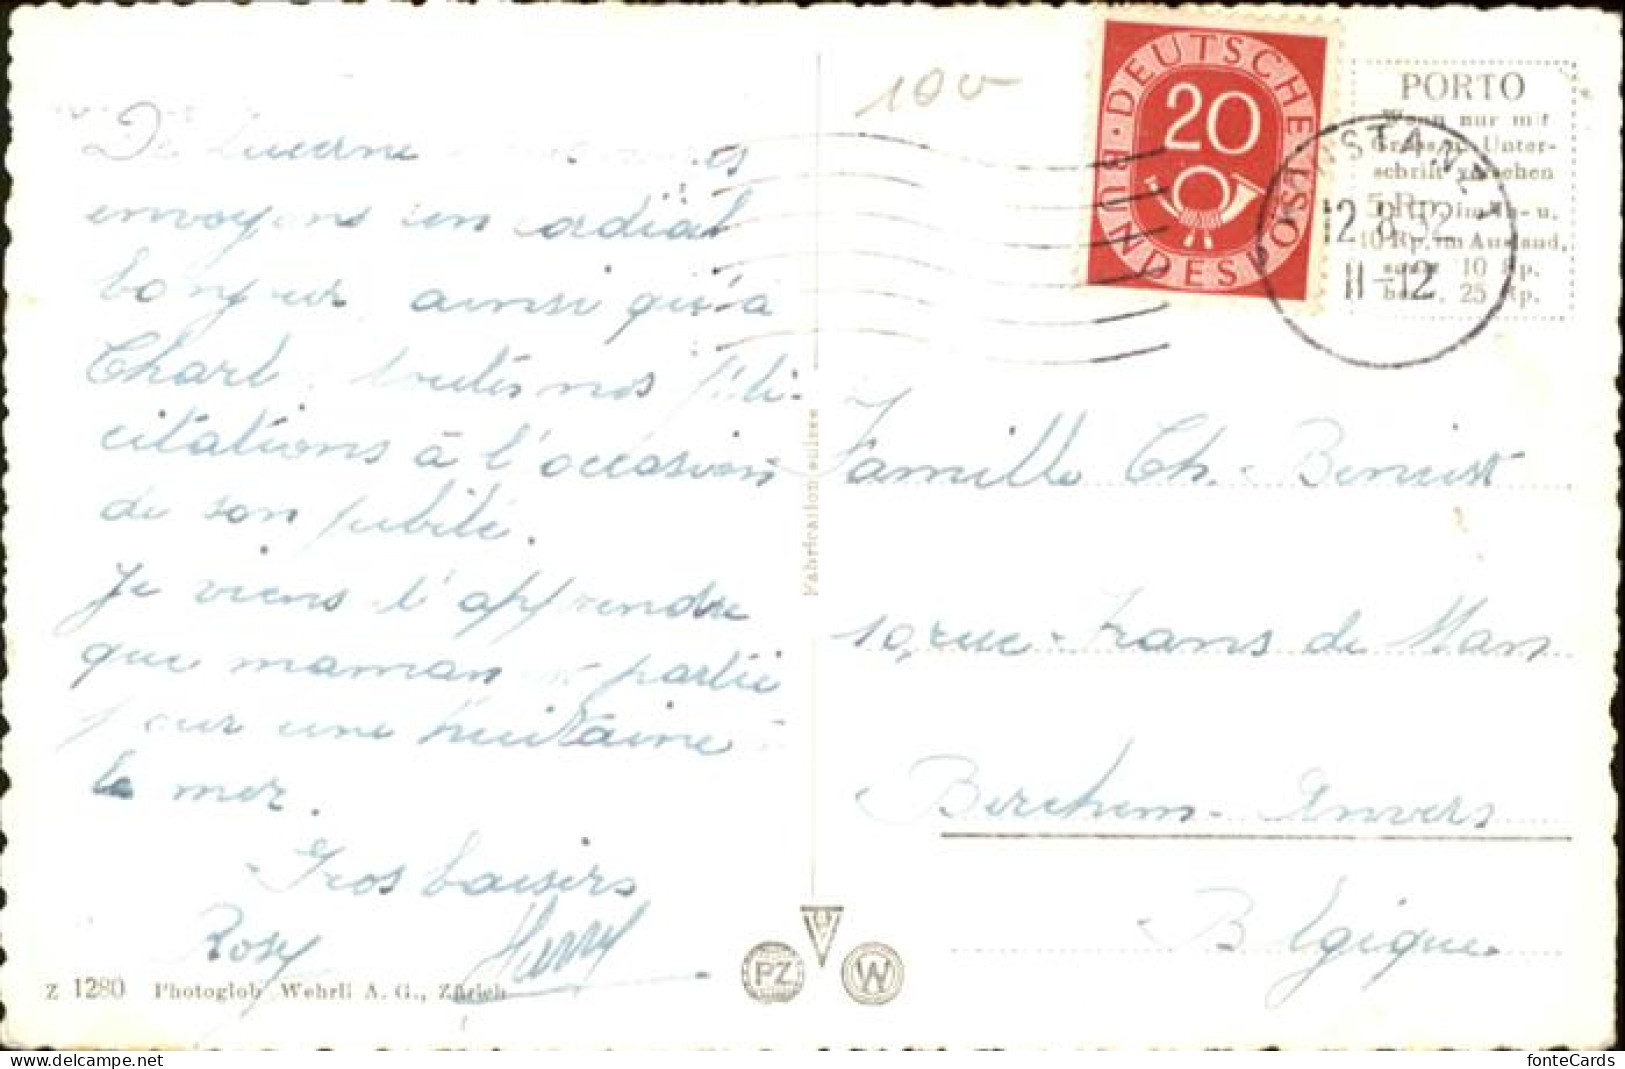 De Lucerne nous vous
envoyons un cordial
bonjour, ainsi qu'à
Charl. toutes nos féli-
citations à l'occasion
de son jubilé.
Je viens d'apprendre
que maman est partie
pour une huitaine à
la mer.
Gros baisers
Rosy Henry
Z 1280 Photoglob Wehrli A. G., Zürich
Fabrication suisse
PZ
W
100
DEUTSCHE BUNDESPOST
20
12.8.52
11-12
PORTO
Wenn nur mit
Gruss u. Unter-
schrift versehen
5 Rp. im In- u.
10 Rp. im Ausland,
sonst 10 Rp.
bezw. 25 Rp.
Famille Ch. Benoist
10, rue Frans de
Berchem - Anvers
Belgique
www.delcampe.net
fonteCards